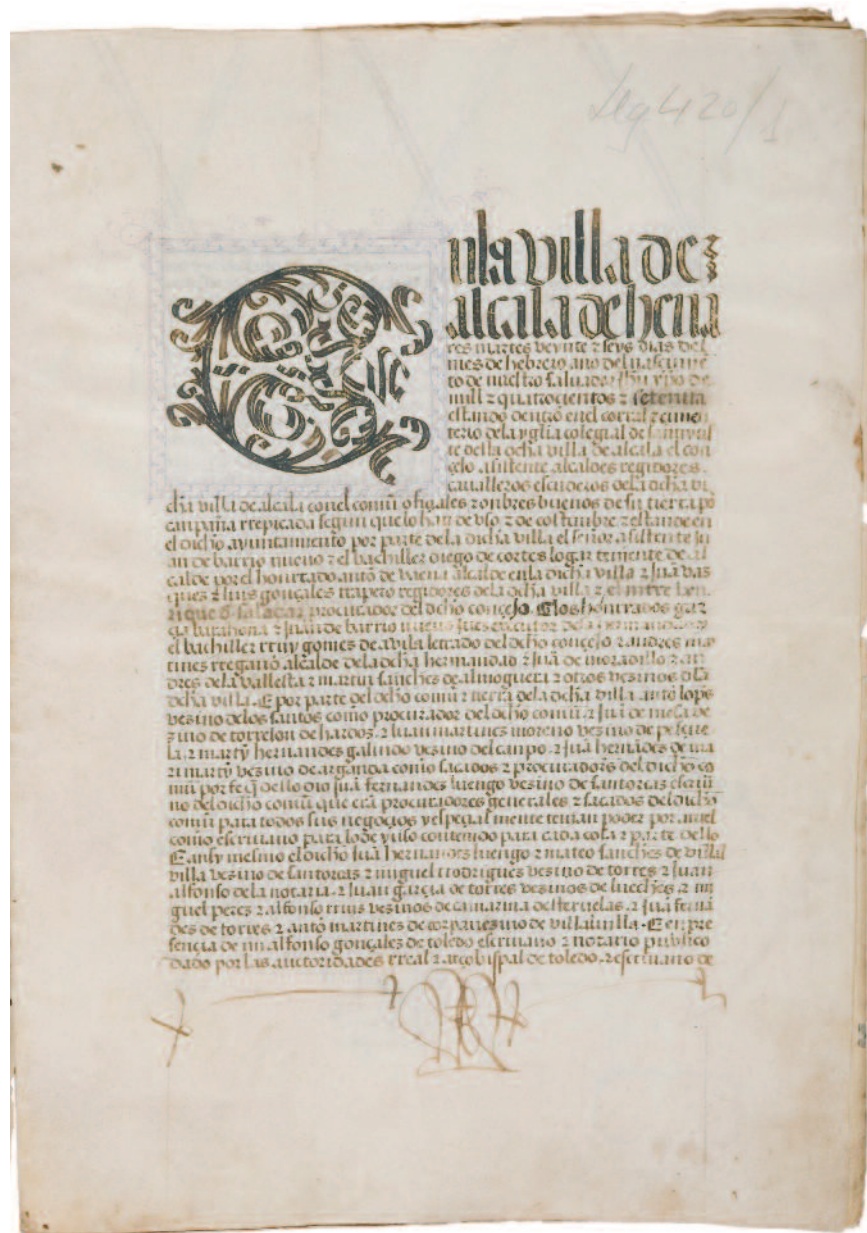 Leg 420/1
En la villa de
alcala de hena
res martes veynte z seys dias del
mes de hebrero año del nascimiē
to de nuestro saluador ihū xpo de
mill z quatroçientos z setenta
estando dentro en el corral z çime
terio dela yglīa colegial de
te dela dicħa villa de alcala el con
çejo asistente alcaldes regidores
caualleros escuderos dela dicħa vi
dicħa villa de alcala con el comū ofiçiales z onbres buenos de su tierra por
canpaña rrepicada segun que lo han de vso z de costunbre z estando en
el dicħo ayuntamiento por parte dela dicħa villa el señor asistente ju
an de barrio nueuo z el bachiller diego de cortes logar teniente de al
calde por el honrrado antō de baena alcalde enla dicħa villa z juā vas
ques z luis gonçales trapero regidores dela dicħa villa z
rique procurador del dicħo conçejo. E los honrrados gar
çia barahona z juan de barrio nueuo
el bachiller rruy gomes de auila letrado del dicħo conçejo z andres mar
tines alcalde dela dicħa hermandad z juā de moradillo z an
dres dela vallesta z martin sanches de almoguera z otros vesinos dela
dicħa villa. E por parte del dicħo comū z tierra dela dicħa villa antō lopes
vesino delos santos como procurador del dicħo comū. z juā de mesa ve
zino de torrejon de hardos. z juan martines moreno vesino de pesque
la. z martyn hernandes galindo vesino del canpo. z juā hernādes de ma
ri martyn vesino de arganda como sacados z procuradores del dicħo co
mū por fe q̄ dello dio juā fernandes luengo vesino de santorcas escriua
no del dicħo comū que erā procuradores generales z sacados del dicħo
comū para todos sus negoçios y espeçial mente tenian poder por antel
como escriuano para lo de yuso contenido para cada cosa z parte dello
E ansy mesmo el dicħo juā hernandes luengo z mateo sanches de villal
villa vesino de santorcas z miguel rrodrigues vesino de torres z juan
alfonso dela notaria. z juan garçia de torres vesinos de lueches. z mi
guel peres z alfonso rruis vesinos de camarma desteruelas. z juā fernā
des de torres z antō martines de corpa vesino de villaluilla. E en pre
sençia de mi alfonso gonçales de toledo escriuano z notario publico
dado por las auctoridades rreal z arçobispal de toledo. z escriuano de